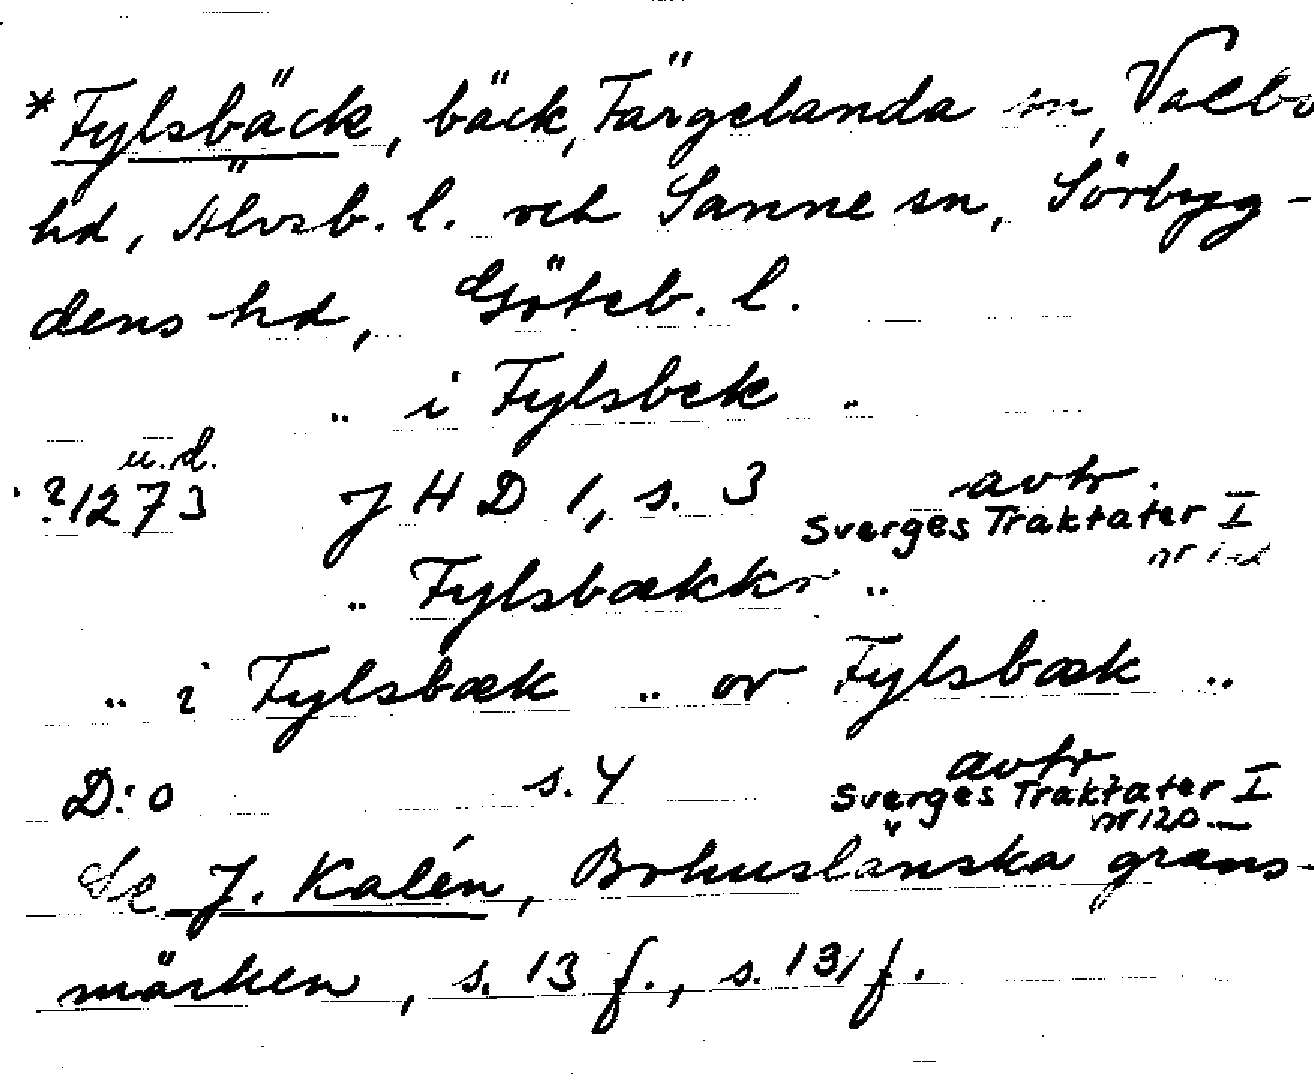 *Fylsbäck, bäck, Färgelanda sn, Valbo
hd, Älvsb. l. och Sanne sn, Sörbyg-
dens hd, Göteb. l.
.. i Fylsbek ..
u.d.
?1273 JHD 1, s. 3 avtr.
Sverges Traktater I
nr
.. Fylsbækkr ..
.. i Fylsbæk .. or Fylsbæk ..
D:o s. 4 avtr
Sverges Traktater I
nr 120
Se J. Kalén, Bohuslänska gräns-
märken, s. 13 f., s. 131 f.